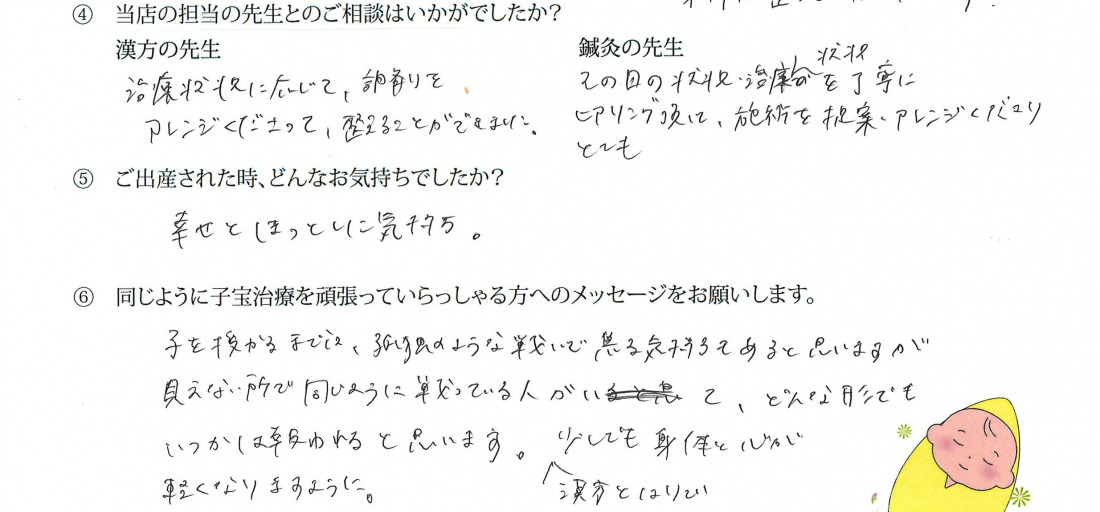 ④ 当店の担当の先生とのご相談はいかがでしたか?
漢方の先生
治療状況に応じて、調剤を
アレンジくださって、整えることができました。
鍼灸の先生
その日の状況・治療状況を丁寧に
ヒアリング頂け、施術を提案・アレンジくださり
とても
⑤ ご出産された時、どんなお気持ちでしたか?
幸せとほっとした気持ち。
⑥ 同じように子宝治療を頑張っていらっしゃる方へのメッセージをお願いします。
子を授かるまでは、孤独のような戦いで焦る気持ちもあると思いますが
見えない所で同じように戦っている人がいて、どんな形でも
いつかは報われると思います。少しでも身体と心が
軽くなりますように。 漢方とはりい